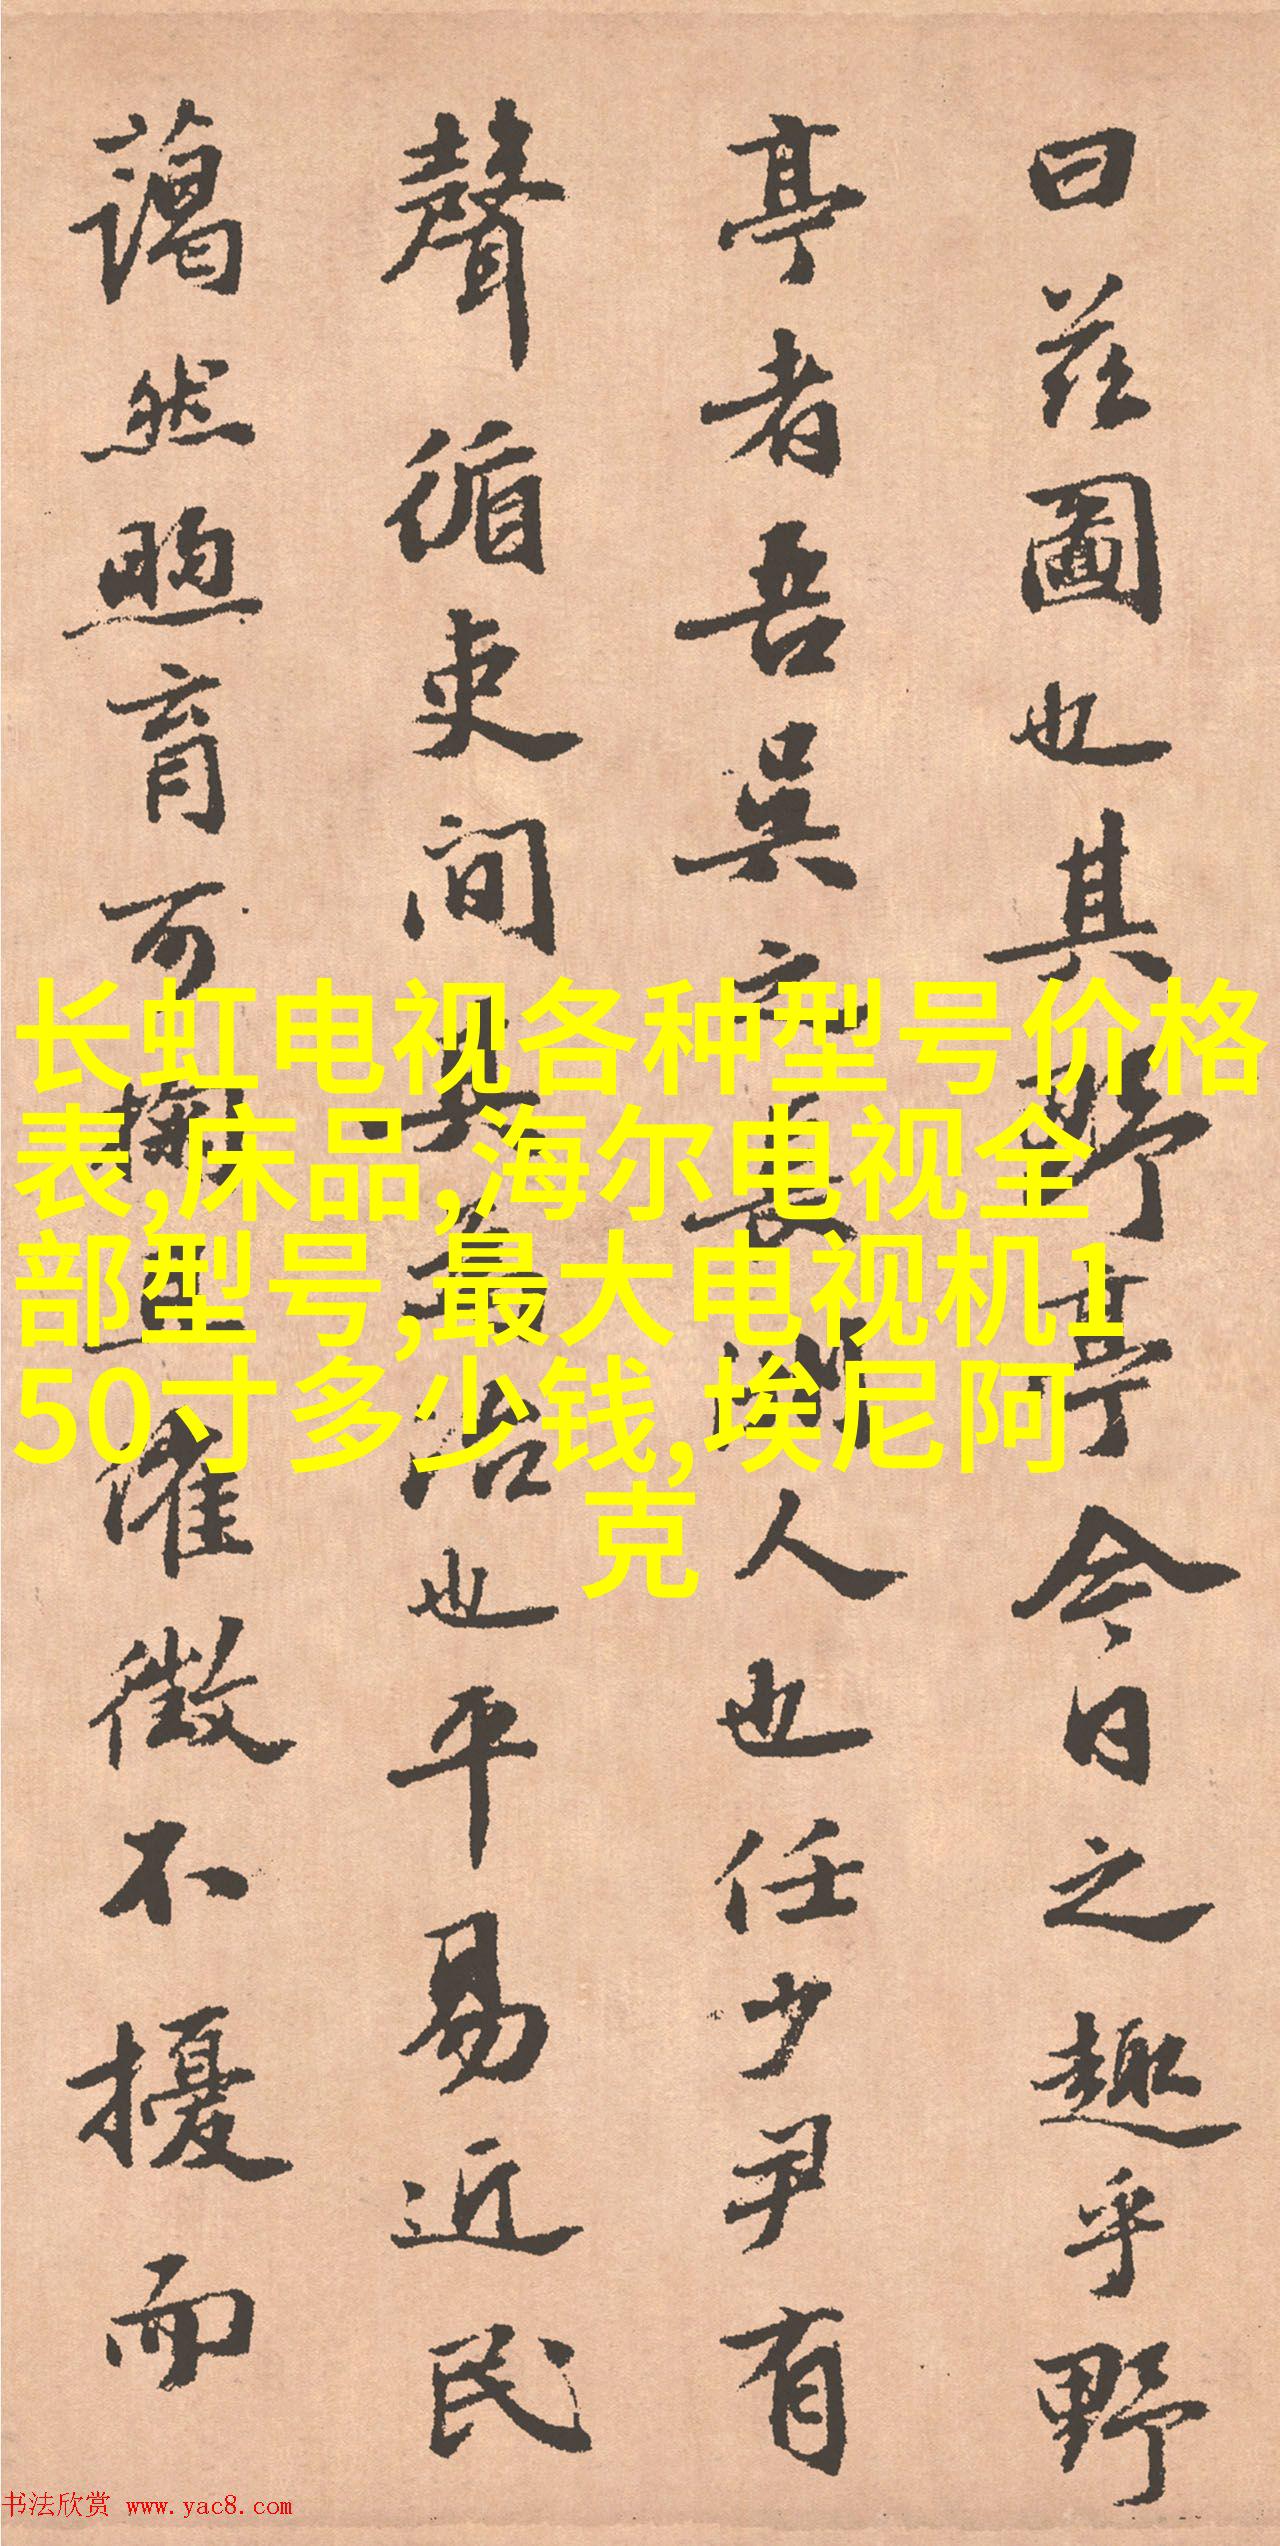 曰茲圖也其野亭今日之趣乎野
亭者吾吳之長洲人也任少尹有
聲循吏間其治也平易近民
藹然煦育可撫催徵不擾而
长虹电视各种型号价格
表,床品,海尔电视全
部型号,最大电视机1
50寸多少钱,埃尼阿
克
书法欣赏 www.yac8.com